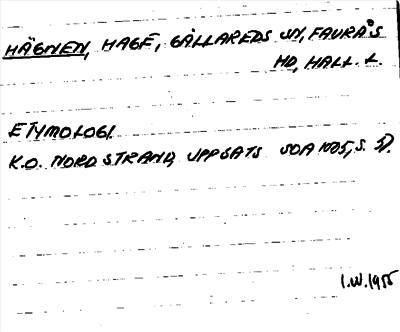 HÄGNEN, HAGE, GÄLLAREDS SN, FAURÅS
HD, HALL. L.
ETYMOLOGI.
K.O. NORDSTRAND, UPPSATS SOA 1925, S. 5).
I.W. 1955